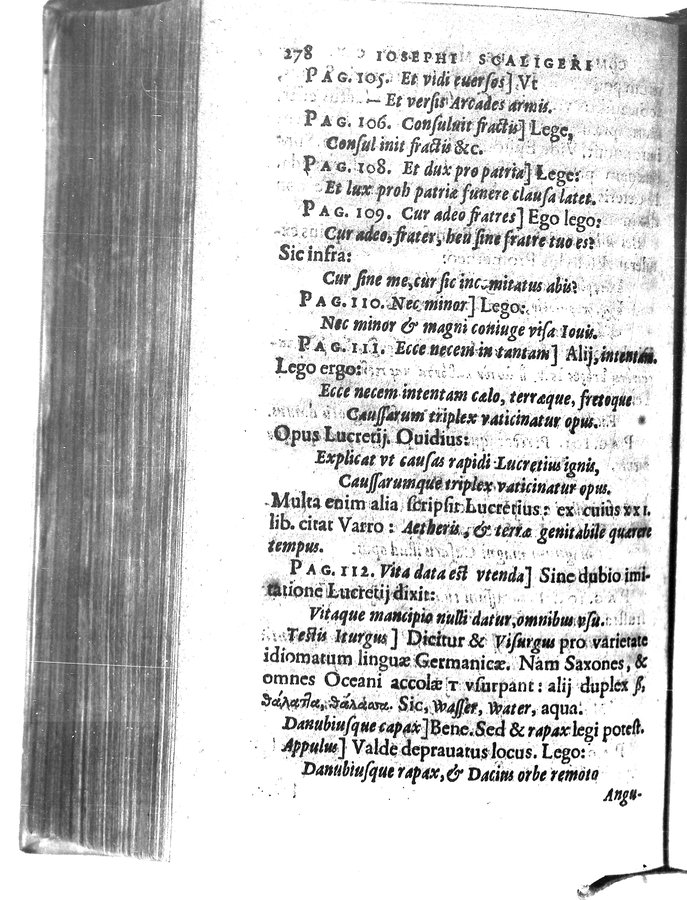 278 IOSEPHI SCALIGERI
PAG. 105. Et vidi euersos] Vt
— Et versis Arcades armis.
PAG. 106. Consuluit fractis] Lege,
Consul init fractis &c.
PAG. 108. Et dux pro patria] Lege:
Et lux proh patriæ funere clausa latet.
PAG. 109. Cur adeo fratres] Ego lego:
Cur adeo, frater, heu sine fratre tuo es?
Sic infra:
Cur sine me, cur sic incomitatus abis?
PAG. 110. Nec minor] Lego:
Nec minor & magni coniuge visa Iouis.
PAG. 111. Ecce necem in tantam] Alij, intentam.
Lego ergo:
Ecce necem intentam cælo, terræque, fretoque
Caussarum triplex vaticinatur opus.
Opus Lucretij. Ouidius:
Explicat vt causas rapidi Lucretius ignis,
Caussarumque triplex vaticinatur opus.
Multa enim alia scripsit Lucretius: ex cuius XXI.
lib. citat Varro: Aetheris, & terræ genitabile quærere
tempus.
PAG. 112. Vita data est vtenda] Sine dubio imi-
tatione Lucretij dixit:
Vitaque mancipio nulli datur, omnibus vsu.
Testis Iturgus] Dicitur & Visurgus pro varietate
idiomatum linguæ Germanicæ. Nam Saxones, &
omnes Oceani accolæ τ vsurpant: alij duplex ß,
θάλαττα, θάλασσα. Sic, Wasser, Water, aqua.
Danubiusque capax] Bene. Sed & rapax legi potest.
Appulus] Valde deprauatus locus. Lego:
Danubiusque rapax, & Dacius orbe remoto
Angu-